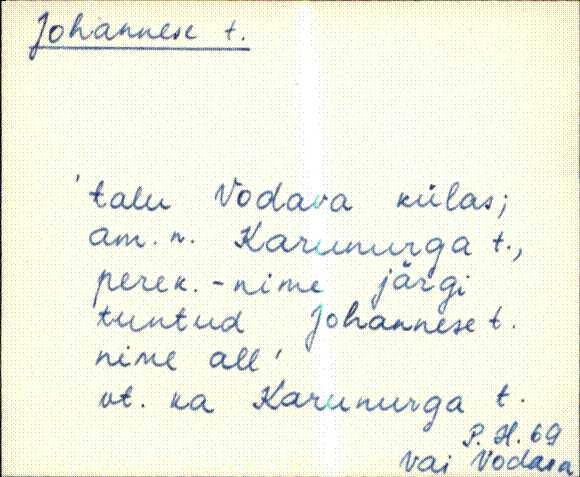 Johannese t.
'talu Vodava külas;
am. n. Karunurga t.,
perek.-nime järgi
tuntud Johannese t.
nime all'
vt. ka Karunurga t.
P. H. 69
Vai Vodava